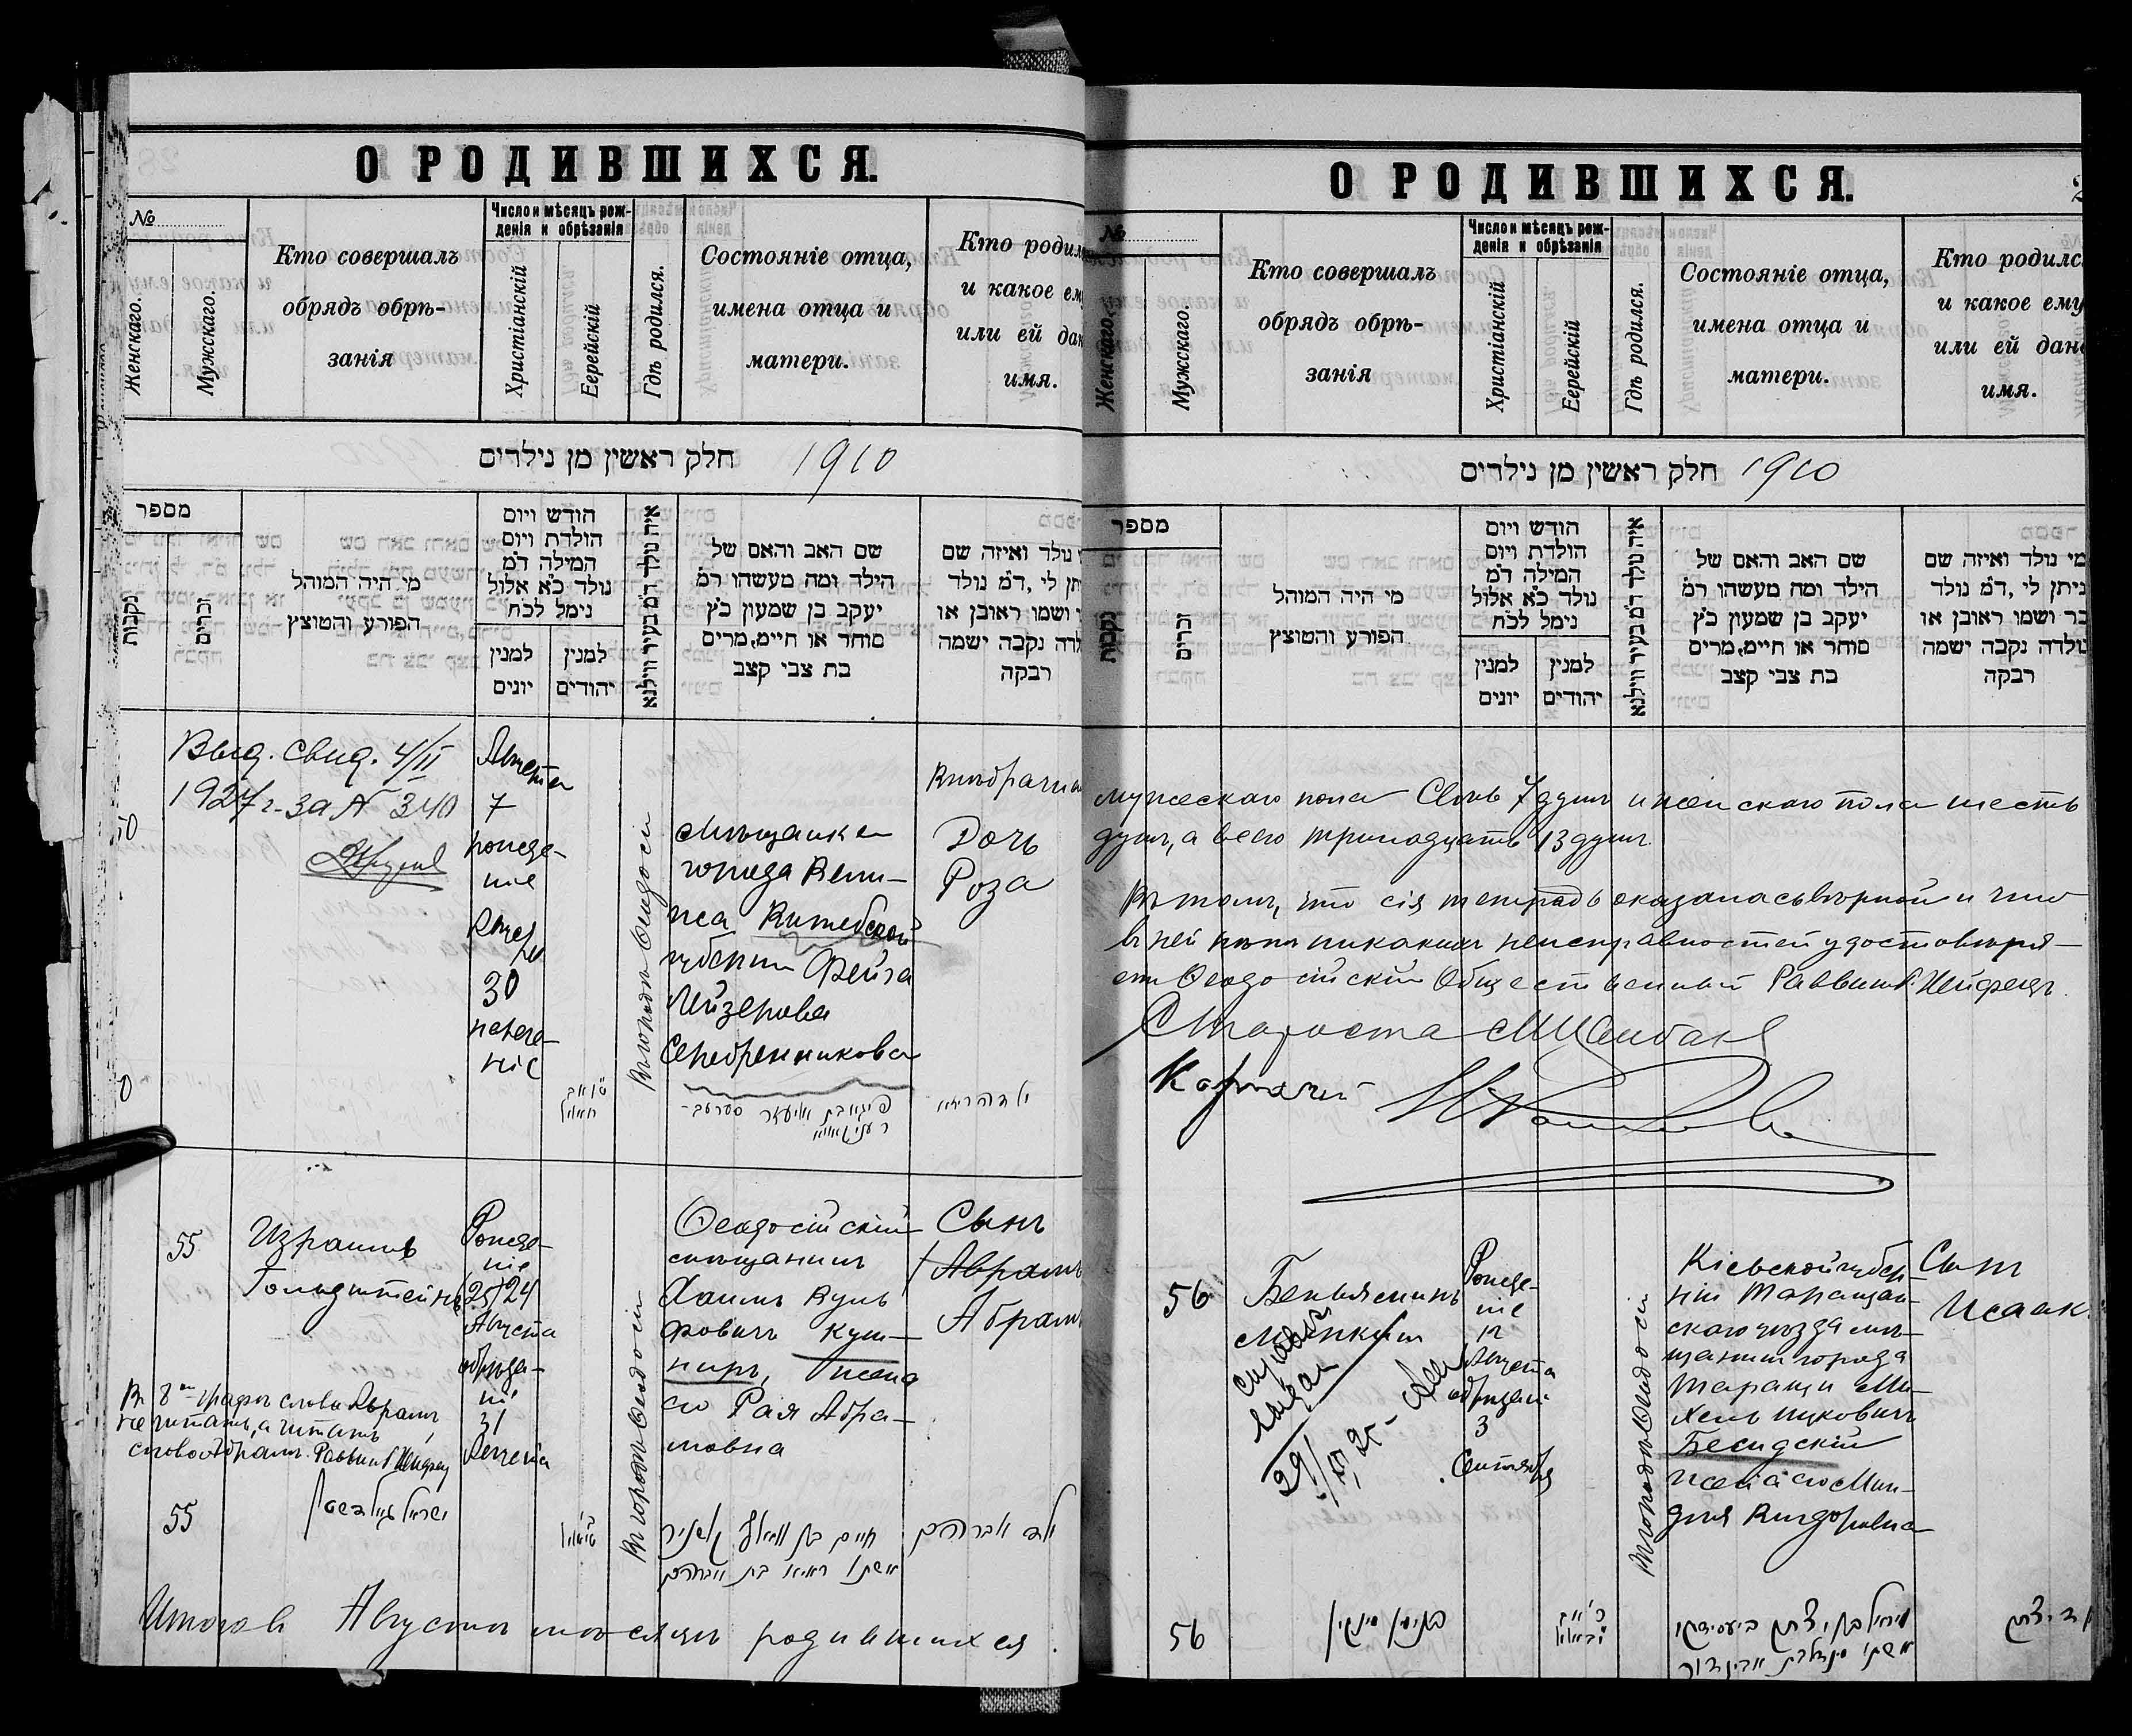 О РОДИВШИХСЯ.
№
Женскаго.
Мужскаго.
Кто совершалъ
обрядъ обрѣ-
занія
Число и мѣсяцъ рож-
денія и обрѣзанія
Христіанскій
Еврейскій
Гдѣ родился.
Состояніе отца,
имена отца и
матери.
Кто родил
и какое ем
или ей да
имя.
חלק ראשין מן נילדים 1910
מספר
נקבות
זכרים
מי היה המוהל
הפורע והטוצץ
הודש ויום
הולדת ויום
המילה ד״מ
נולד כ״א אלול
נימל לכ״ח
למנין
יונים
למנין
יהודים
איה נולד ד״מ בעיר ווילנא
שם האב והאם של
הילד ומה מעשהו ר״מ
יעקב בן שמעון כ״ץ
סוחר או חיים, מרים
בת צבי קצב
נולד ואיזה שם
יתן לי, ד״מ נולד
ושמו ראובן או
לדה נקבה ישמה
רבקה
Выд. свид. 4/II
1927 г. за № 340
Августа
7
рожде-
ніе
30
нарече-
ніе
Въ городѣ Ѳеодосіи
мѣщанка
города Вели-
жа Витебской
губерніи Фейга
Лейзерова
Серебренникова
Внѣбрачна
Дочь
Роза
55
Израиль
Гольдштейнъ
Рожде-
ніе
25/24
Августа
обрѣза-
ніе
31
Августа
Въ городѣ Ѳеодосіи
Ѳеодосійскій
мѣщанинъ
Хаимъ Вуль
фовичъ Куш-
ниръ, жена
его Рая Абра-
мовна
Сынъ
Авраамъ
Абрамъ
Въ 8й графѣ слово Авраамъ
не читать, а читать
слово Абрамъ. Раввинъ
55
ישראל גאלדשטיין
חיים בן וואלף קושניר
אשתו ראיא בת אברהם
ילד אברהם
Итого въ Августѣ мѣсяцѣ родившихся
О РОДИВШИХСЯ.
№
Женскаго.
Мужскаго.
Кто совершалъ
обрядъ обрѣ-
занія
Число и мѣсяцъ рож-
денія и обрѣзанія
Христіанскій
Еврейскій
Гдѣ родился.
Состояніе отца,
имена отца и
матери.
Кто родилс
и какое ему
или ей дан
имя.
חלק ראשין מן נילדים 1910
מספר
נקבות
זכרים
מי היה המוהל
הפורע והטוצץ
הודש ויום
הולדת ויום
המילה ד״מ
נולד כ״א אלול
נימל לכ״ח
למנין
יונים
למנין
יהודים
איה נולד ד״מ בעיר ווילנא
שם האב והאם של
הילד ומה מעשהו ר״מ
יעקב בן שמעון כ״ץ
סוחר או חיים, מרים
בת צבי קצב
מי נולד ואיזה שם
ניתן לי, ד״מ נולד
כר ושמו ראובן או
ולדה נקבה ישמה
רבקה
мужескаго пола семь 7 душъ и женскаго пола шесть
душъ, а всего тринадцать 13 душъ.
Въ томъ, что сія тетрадь оказалась вѣрной и что
въ ней нѣтъ никакихъ неисправностей удостовѣря-
етъ Ѳеодосійскій Общественный Раввинъ
Староста
Казначей
56
Беньяминъ
Рожде-
ніе
Августа
обрѣзаніе
3
Сентября
29/
Въ городѣ Ѳеодосіи
Кіевской губер-
ніи Таращан-
скаго уѣзда мѣ-
щанинъ города
Таращи Ми-
хель Ицковичъ
Бесидскій
жена его Мин-
для Вигдоровна
Сынъ
Исаакъ
56
בנימין מינקין